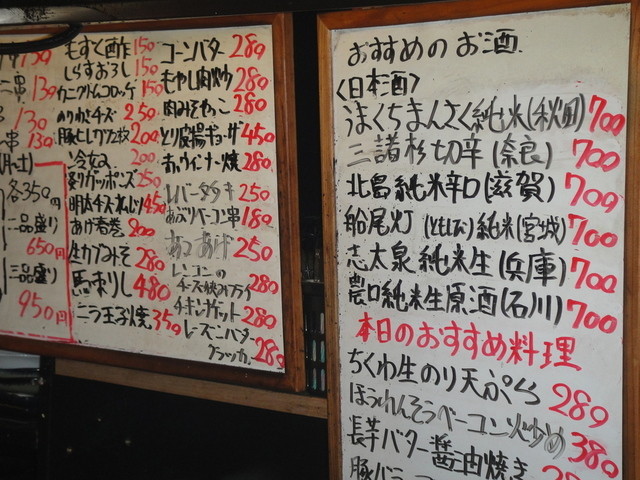 もずく酢 150
しらすおろし 130
カニクリームコロッケ 150
のりわさチーズ 250
200
冷奴 200
ガーリックポンズ 250
明太チーズ 450
あげ春巻 200
生カブみそ 280
馬刺し 480
ニラ玉子焼 350
コーンバター 280
もやし肉炒 280
肉みそやっこ 280
とり皮揚ギョーザ 450
赤ウインナー焼 280
レバータタキ 250
あぶりベーコン串 180
250
レンコンの
チーズ挟みフライ 280
チキンナゲット 280
レーズンバター
クラッカー 280
150
130
130
串 130
各350円
二品盛り
650円
三品盛り
950円
おすすめのお酒
〈日本酒〉
うまくちまんさく純米(秋田) 700
三諸杉 切辛(奈良) 700
北畠 純米辛口(滋賀) 700
船尾灯(ともしび)純米(宮城) 700
志太泉 純米生(兵庫) 700
農口純米生原酒(石川) 700
本日のおすすめ料理
ちくわ生のり天ぷら 280
ほうれんそうベーコン炒め 380
長芋バター醤油焼き
豚バラ